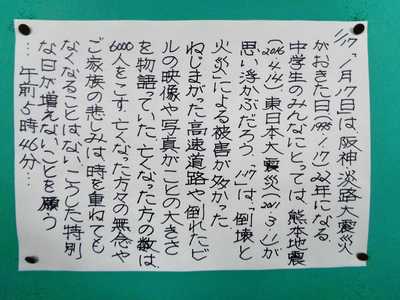 1/17 「1月17日」は、阪神淡路大震災
がおきた日(1995.1.17)22年になる
中学生のみんなにとっては、熊本地震
(2016.4.14)、東日本大震災(2011.3.11)が
思い浮かぶだろう。1/17は、倒壊と
火災による被害が多かった
ねじまがった高速道路や倒れたビ
ルの映像や写真がことの大きさ
を物語っていた。亡くなった方の数は、
6000人をこす。亡くなった方々の無念や
ご家族の悲しみは、時を重ねても
なくなることはない。こうした特別
な日が増えないことを願う
…午前5時46分…